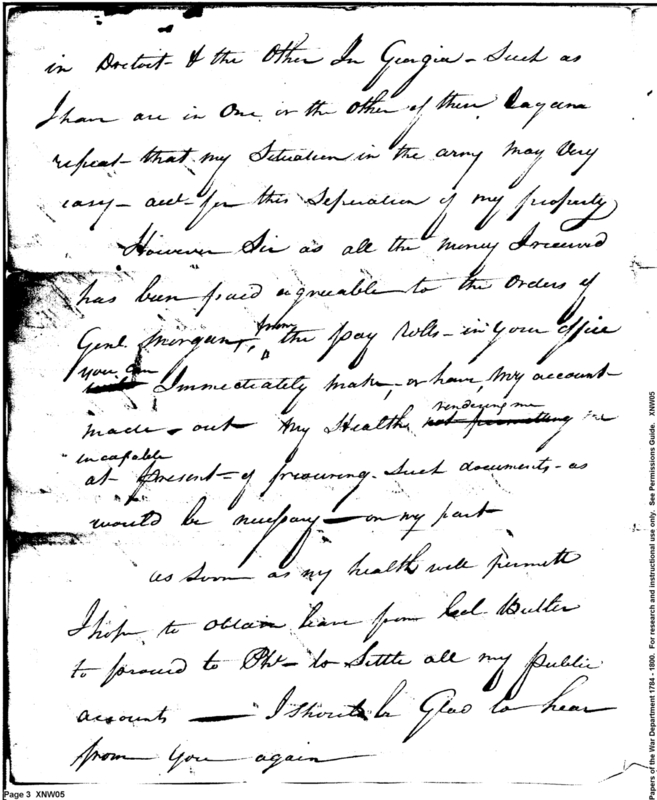 in Detroit & the Other In Georgia - Such as
I have are in One or the other of them I again
repeat - that my Situation in the army May Very
easy - act - for this Seperation of my property
However Sir as all the Money I received
has been paid agreeable to the Orders of
Genl Morgan, from the pay Rolls - in your office
you can Immediately make, or have, My account
made - out My Health rendering me
incapable
at present - of procuring - Such documents - as
would be necessary — on my part
as soon as my health will permitt
I hope to obtain leave from Col. Butler
to proceed to Pha - to Settle all my public
accounts — I should be Glad to hear
from you again
Page 3 XNW05
Papers of the War Department 1784 - 1800. For research and instructional use only. See Permissions Guide. XNW05